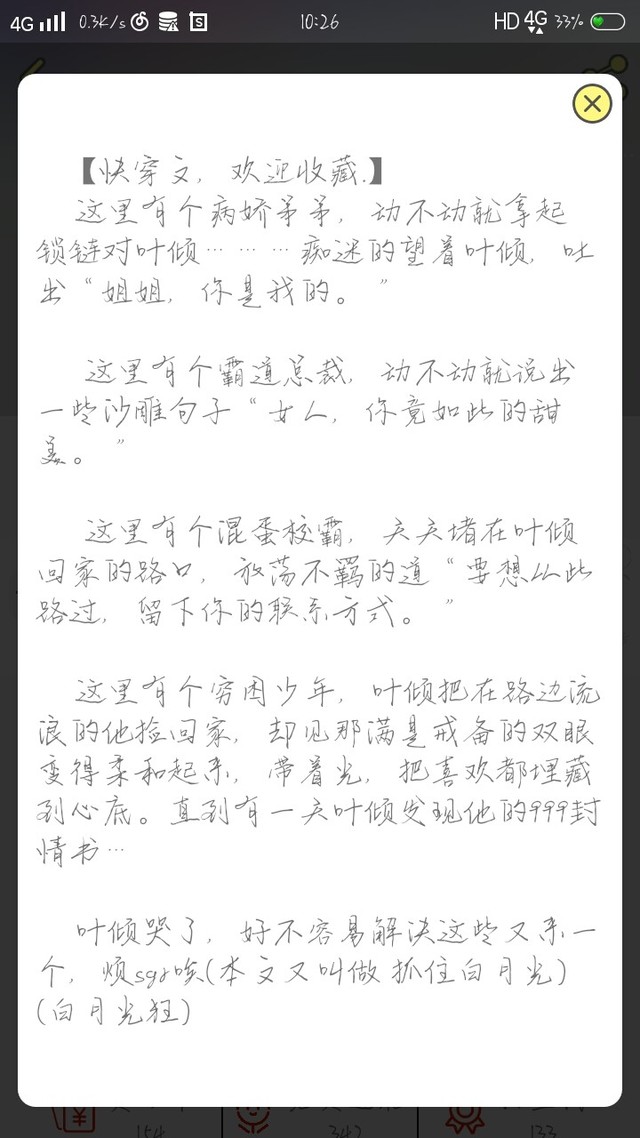 4G 0.3K/s 10:26 HD 4G 33%
【快穿文，欢迎收藏.】
这里有个病娇弟弟，动不动就拿起
锁链对叶倾………痴迷的望着叶倾，吐
出“姐姐，你是我的。”
这里有个霸道总裁，动不动就说出
一些沙雕句子“女人，你竟如此的甜
美。”
这里有个混蛋校霸，天天堵在叶倾
回家的路口，放荡不羁的道“要想从此
路过，留下你的联系方式。”
这里有个穷困少年，叶倾把在路边流
浪的他捡回家，却见那满是戒备的双眼
变得柔和起来，带着光，把喜欢都埋藏
到心底。直到有一天叶倾发现他的999封
情书…
叶倾哭了，好不容易解决这些又来一
个，烦sgr唉(本文又叫做 抓住白月光)
(白月光狂)
154 342 133